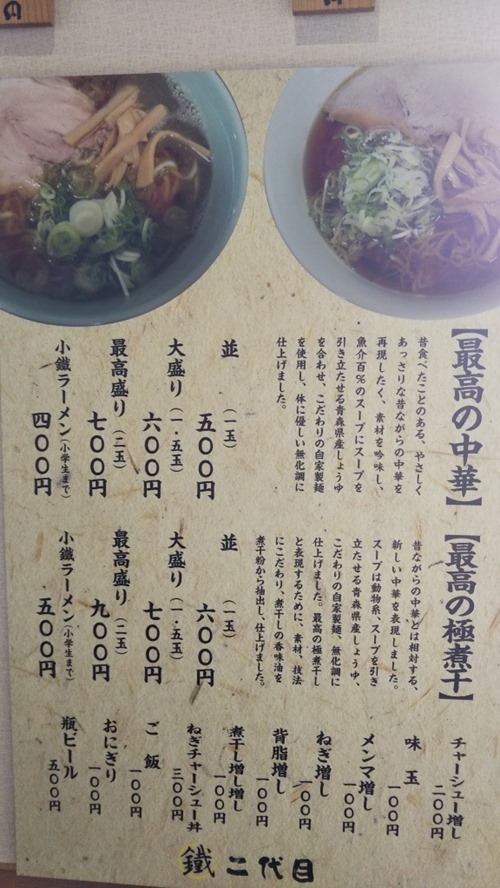 【最高の中華】
昔食べたことのある、やさしく
あっさりな昔ながらの中華を
再現したく、素材を吟味し、
魚介百%のスープにスープを
引き立たせる青森県産しょうゆ
を合わせ、こだわりの自家製麺
を使用し、体に優しい無化調に
仕上げました。
並(一玉) 五〇〇円
大盛り(一・五玉) 六〇〇円
最高盛り(二玉) 七〇〇円
小鐵ラーメン(小学生まで) 四〇〇円
【最高の極煮干】
昔ながらの中華とは相対する、
新しい中華を表現しました。
スープは動物系、スープを引き
立たせる青森県産しょうゆ、
こだわりの自家製麺、無化調に
仕上げました。最高の極煮干し
と表現するために、素材、技法
にこだわり、煮干しの香味油を
煮干粉から抽出し、仕上げました。
並(一玉) 六〇〇円
大盛り(一・五玉) 七〇〇円
最高盛り(二玉) 九〇〇円
小鐵ラーメン(小学生まで) 五〇〇円
チャーシュー増し 二〇〇円
味玉 一〇〇円
メンマ増し 一〇〇円
ねぎ増し 一〇〇円
背脂増し 一〇〇円
煮干し増し増し 一〇〇円
ねぎチャーシュー丼 三〇〇円
ご飯 一〇〇円
おにぎり 一〇〇円
瓶ビール 五〇〇円
鐵 二代目